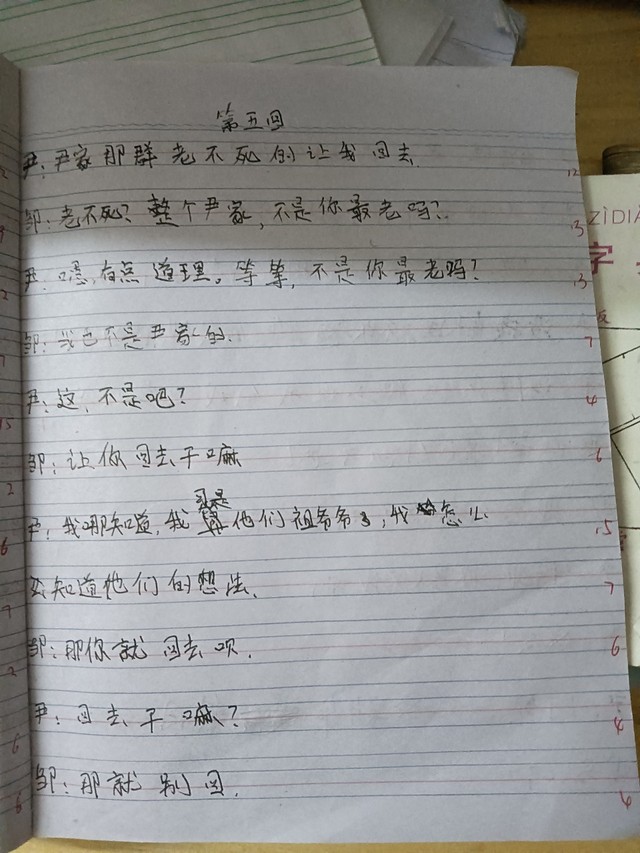 第五回
尹：尹家那群老不死的让我回去. 12
邹：老不死？整个尹家，不是你最老吗？ 13
尹：嗯，有点道理。等等，不是你最老吗？ 13
邹：我也不是尹家的. 7
尹：这，不是吧？ 4
邹：让你回去干嘛 6
可是
尹：我哪知道，我算他们祖爷爷，我怎么 15
知道他们的想法. 7
邹：那你就回去呗. 6
尹：回去干嘛？ 4
邹：那就别回. 4
ZÌDIǍ
字